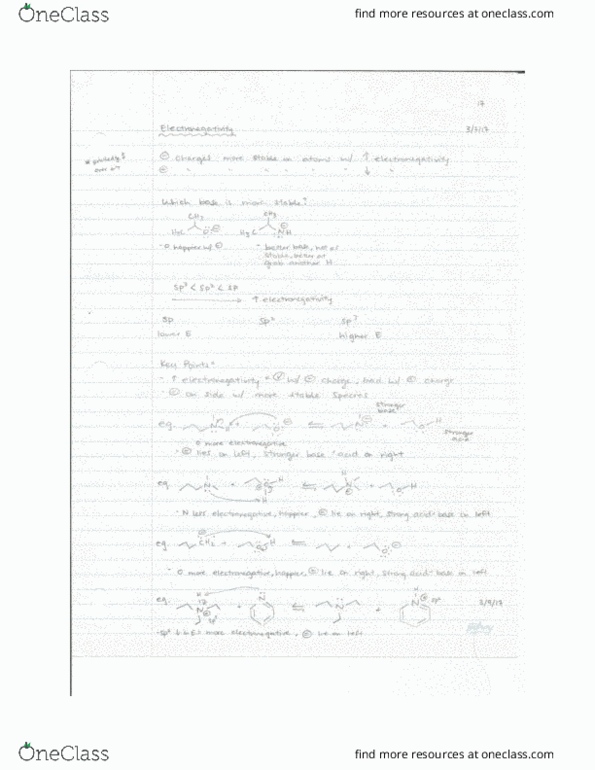 OneClass
find more resources at oneclass.com
17
Electronegativity
3/7/17
⊖ charges more stable on atoms w/ ↑ electronegativity
⊕ " " " " " ↓ "
Which base is more stable?
CH3 CH3
H3C O⊖ H3C NH
- O happier w/ ⊖ - better base, not as
stable, better at
grab another H
sp3 < sp2 < sp
↑ electronegativity
sp sp2 sp3
lower E higher E
Key Points:
- ↑ electronegativity = w/ ⊖ charge, bad w/ ⊕ charge
on side w/ more stable species
stronger
base
eg. N + O ⇌ N + O H
stronger
acid
O more electronegative
lies on left, stronger base acid on right
eg. N + O H ⇌ N + O
- N less electronegative, happier, lie on right, strong acid base on left
eg. CH2 + O H ⇌ + O⊖
- O more electronegative, happier, lie on right, strong acid base on left
eg. N + N ⇌ N + N
3/9/17
more electronegative, lie on left
OneClass
find more resources at oneclass.com